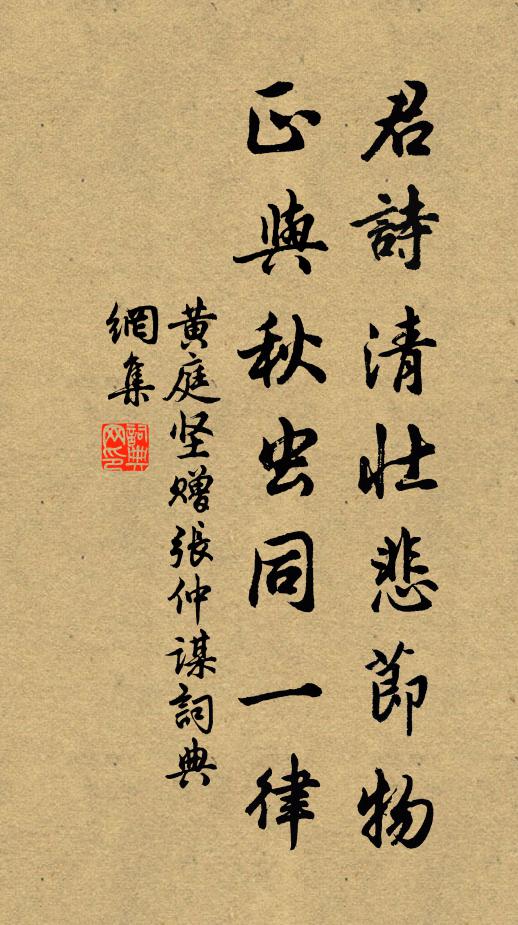 君詩清壮悲節物
正與秋虫同一律
黄庭坚贈張仲謀詞典
網集
詞典網印